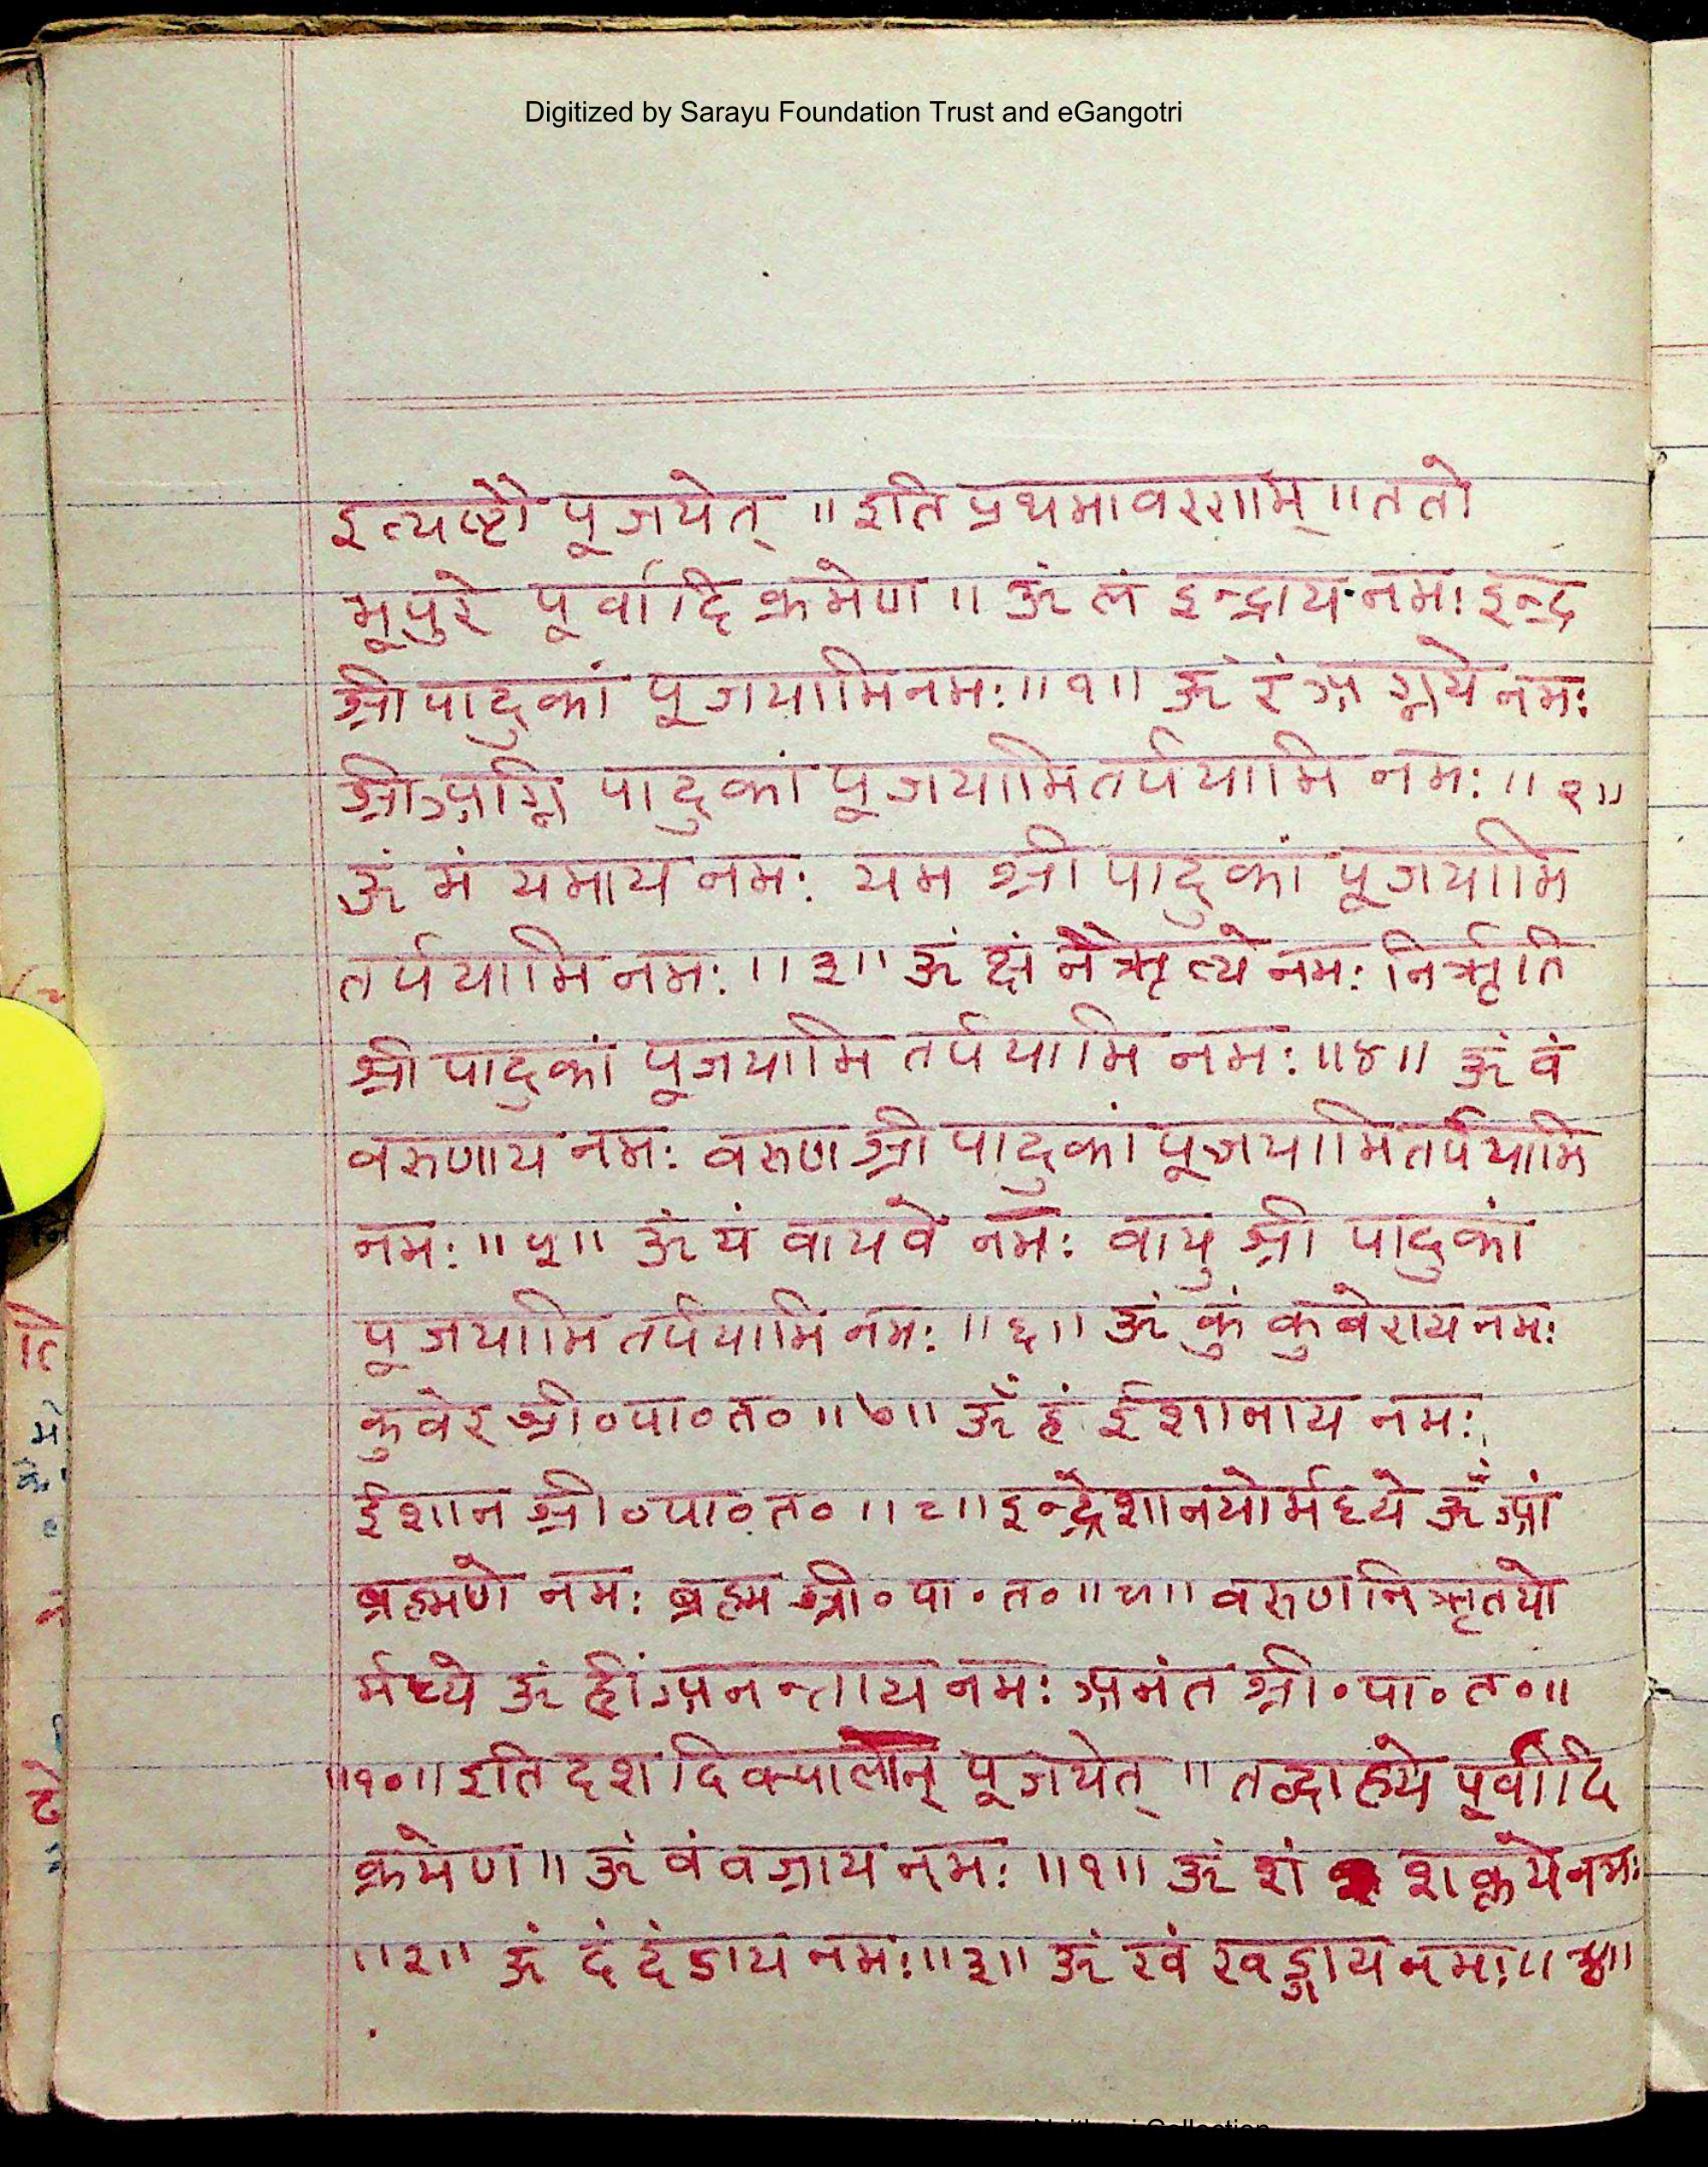 Digitized by Sarayu Foundation Trust and eGangotri
इत्यष्टौ पूजयेत् ॥ इति प्रथमावरणम् ॥ ततो
भूपुरे पूर्वादि क्रमेण ॥ ॐ लं इन्द्राय नमः इन्द्र
श्री पादुकां पूजयामि नमः ॥१॥ ॐ रं अग्नये नमः
श्री अग्नि पादुकां पूजयामि तर्पयामि नमः ॥२॥
ॐ मं यमाय नमः यम श्री पादुकां पूजयामि
तर्पयामि नमः ॥३॥ ॐ क्षं नैऋत्ये नमः निर्ऋति
श्री पादुकां पूजयामि तर्पयामि नमः ॥४॥ ॐ वं
वरुणाय नमः वरुण श्री पादुकां पूजयामि तर्पयामि
नमः ॥५॥ ॐ यं वायवे नमः वायु श्री पादुकां
पूजयामि तर्पयामि नमः ॥६॥ ॐ कुं कुबेराय नमः
कुवेर श्री०पा०त० ॥७॥ ॐ हं ईशानाय नमः
ईशान श्री०पा०त० ॥८॥ इन्द्रेशानयोर्मध्ये ॐ आं
ब्रह्मणे नमः ब्रह्म श्री०पा०त० ॥९॥ वरुण निऋतयो
र्मध्ये ॐ ह्रीं अनन्ताय नमः अनंत श्री०पा०त०॥
॥१०॥ इति दश दिक्पालान् पूजयेत् ॥ तद्बाह्ये पूर्वादि
क्रमेण ॥ ॐ वं वज्राय नमः ॥१॥ ॐ शं शक्तये नमः
॥२॥ ॐ दं दंडाय नमः ॥३॥ ॐ खं खड्गाय नमः ॥४॥
Collection